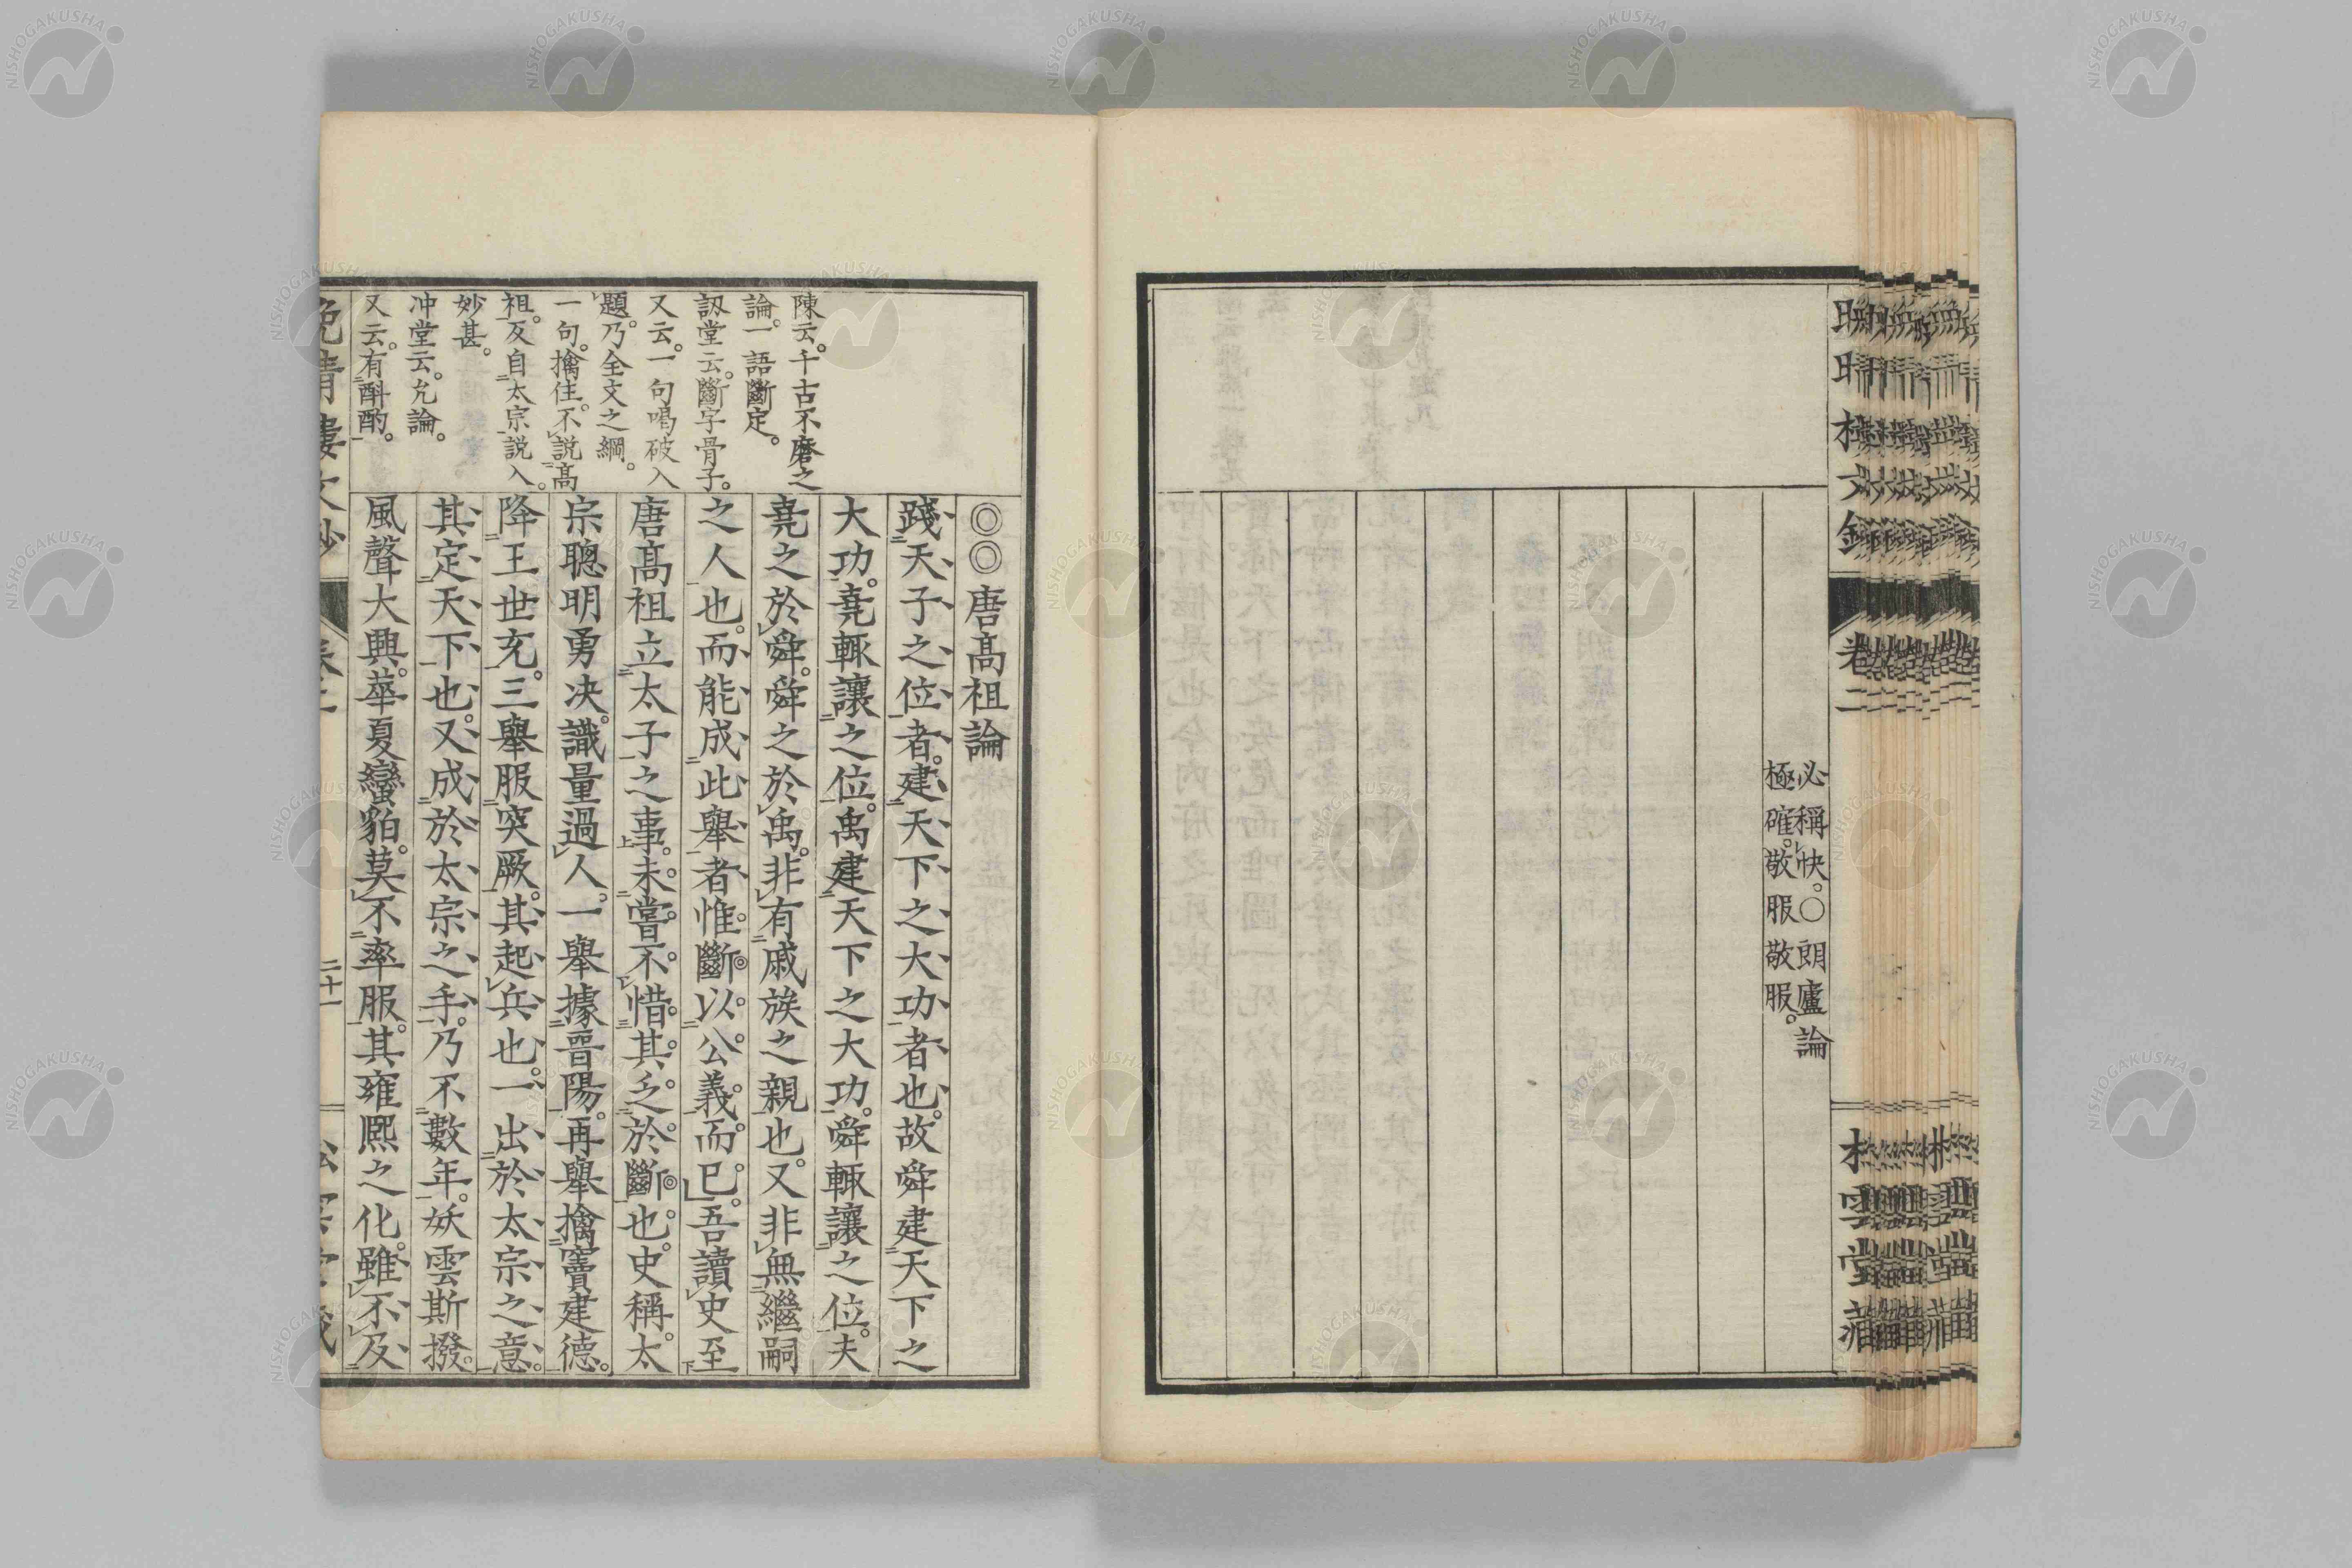 必稱快。〇朗廬論
極確。敬服敬服。
卷二
陳云。千古不磨之
論。一語斷定。
訒堂云。斷字骨子。
又云。一句喝破入
題。乃全文之綱。
一句。擒住。不説高
祖。反自太宗説入。
妙甚。
冲堂云。允論。
又云。有斟酌。
◎◎唐高祖論
踐天子之位者。建天下之大功者也。故舜建天下之
大功。堯輒讓之位。禹建天下之大功。舜輒讓之位。夫
堯之於舜。舜之於禹。非有戚族之親也。又非無繼嗣
之人也。而能成此舉者。惟斷以公義而已。吾讀史至
唐高祖立太子之事。未嘗不惜其乏於斷也。史稱。太
宗聰明勇决。識量過人。一舉據晉陽。再舉擒竇建德。
降王世充。三舉服突厥。其起兵也。一出於太宗之意。
其定天下也。又成於太宗之手。乃不數年。妖雲斯撥。
風聲大興。華夏蠻貊。莫不率服。其雍熙之化。雖不及
二十一
NISHOGAKUSHA